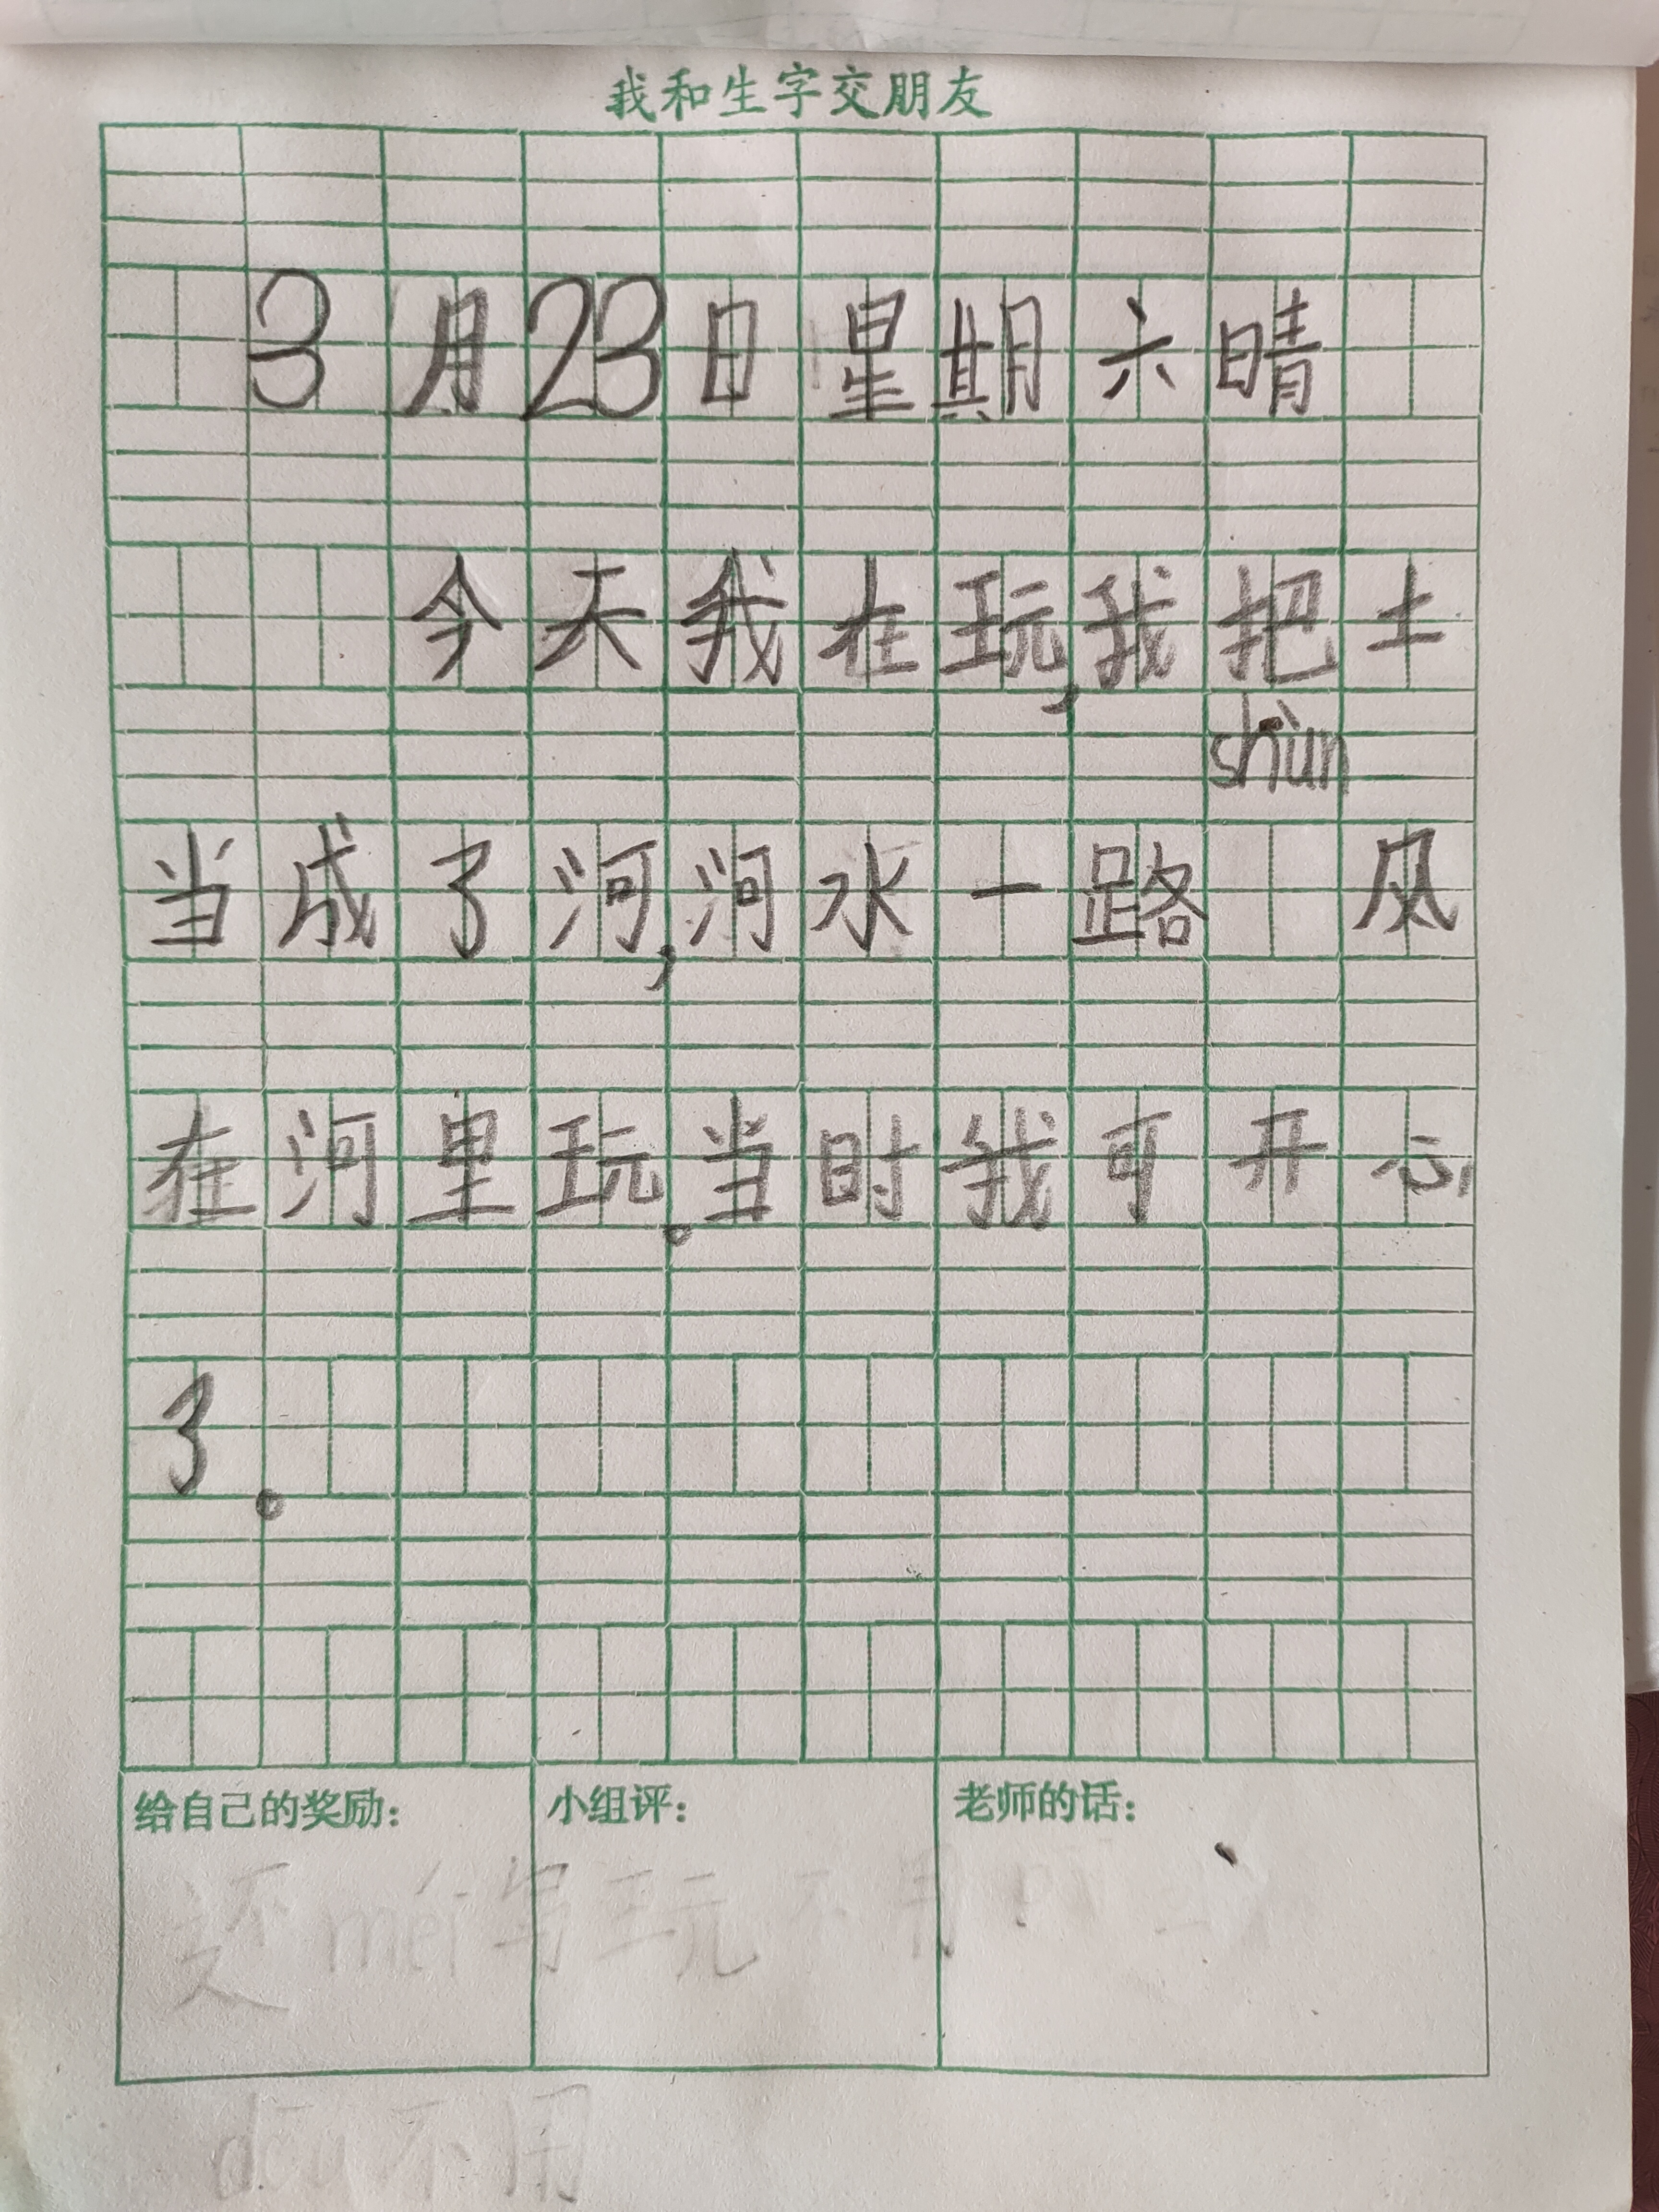 我和生字交朋友
3月23日星期六晴
今天我在玩,我把土
shùn
当成了河,河水一路 风
在河里玩。当时我可开心
了。
给自己的奖励: 小组评: 老师的话:
还 méi 写 玩 不 用
dōu 不用